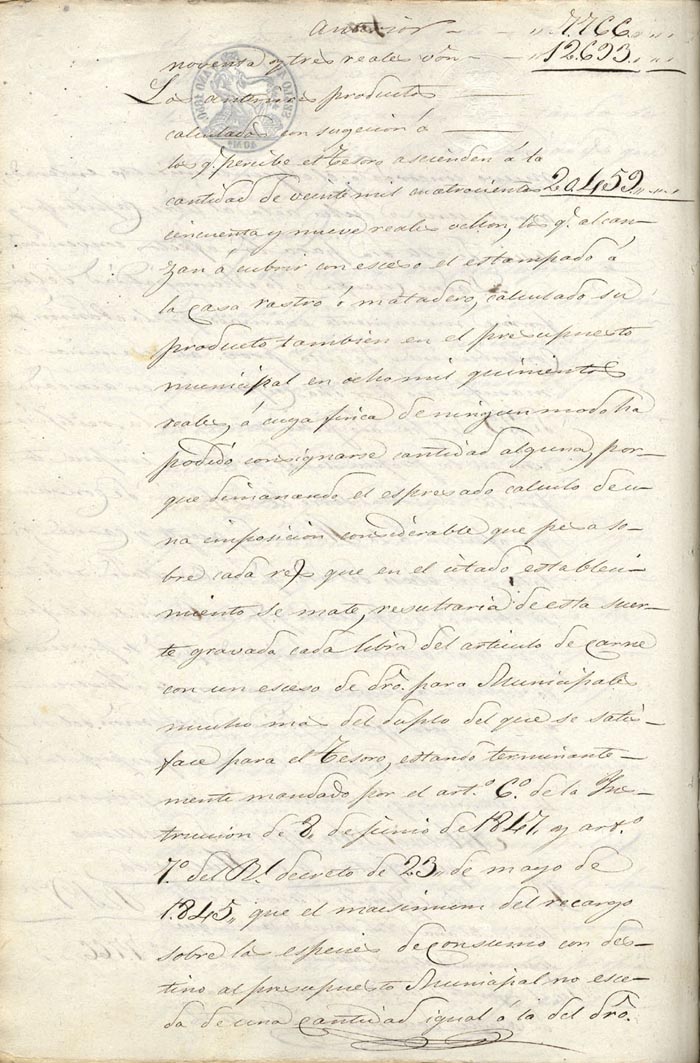 Anterior — „ 7.766 „ „ „
noventa y tres reales vón — 12.693 „ „ „
Los anteriores productos
calculados con sugecion á
los q.e percibe el Tesoro ascienden á la
cantidad de veinte mil cuatrocientos 20.459 „ „ „
cincuenta y nueve reales vellon, los q.e alcan-
zan á cubrir con esceso el estampado á
la casa rastro ó matadero, calculado su
producto tambien en el presupuesto
municipal en ocho mil quinientos
reales, á cuya finca de ningun modo ha
podido consignarse cantidad alguna, por-
que dimanando el espresado calculo de u-
na imposicion considerable que pesa so-
bre cada res que en el citado estableci-
miento se mate, resultaria de esta suer-
te gravada cada libra del articulo de carne
con un esceso de dro. para Municipales
mucho mas del duplo del que se satis-
face para el Tesoro, estando terminante-
mente mandado por el art.o 6.o de la Ins-
truccion de 8 de junio de 1847, y art.o
7.o del R.l decreto de 23 „ de mayo de
1.845 „ que el macsimum del recargo
sobre las especies de consumo con des-
tino al presupuesto Municipal no esce-
da de una cantidad igual á la del dro.